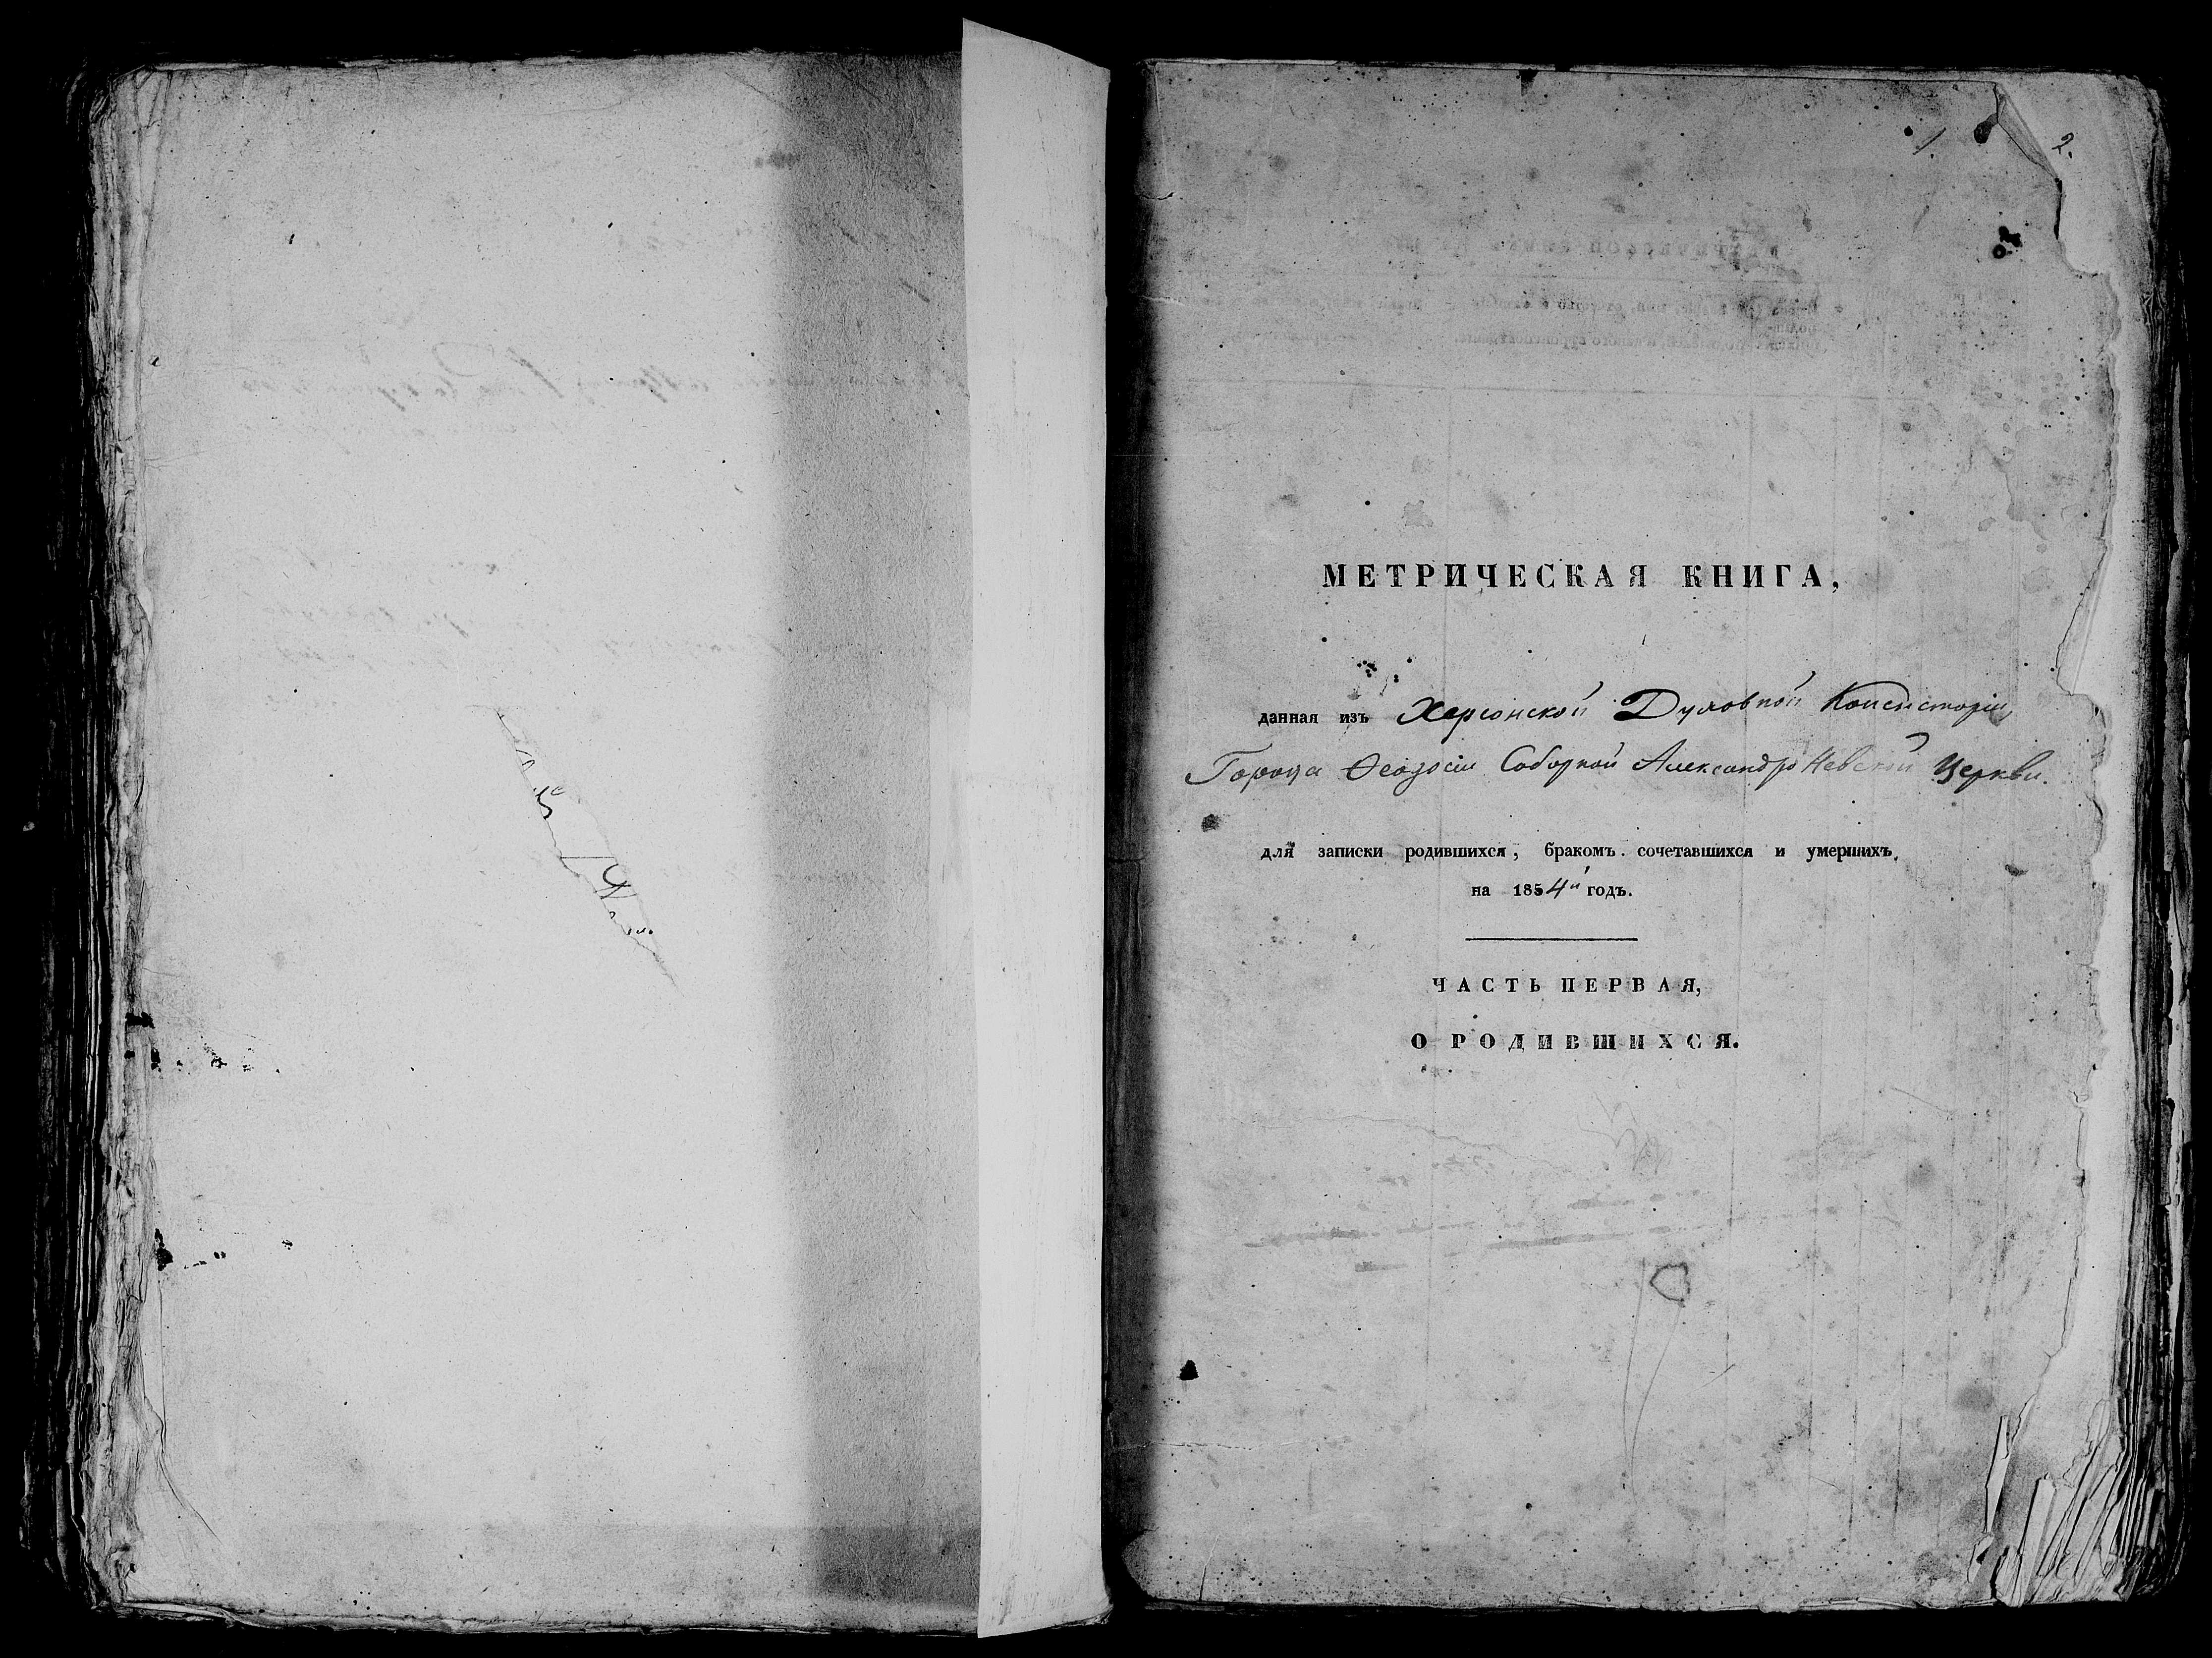 1. 2.
МЕТРИЧЕСКАЯ КНИГА,
данная изъ Херсонской Духовной Консисторіи,
Города Ѳеодосіи Соборной Александро Невской Церкви.
для записки родившихся, бракомъ сочетавшихся и умершихъ,
на 1854й годъ.
ЧАСТЬ ПЕРВАЯ,
О РОДИВШИХСЯ.